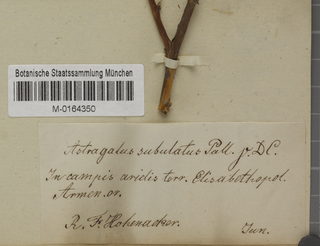 Botanische Staatssammlung München
M-0164350
Astragalus subulatus Pall. p. DC.
In campis aridis terr. Elisabethopol.
Armen. or.
R. F. Hohenacker. Jun.